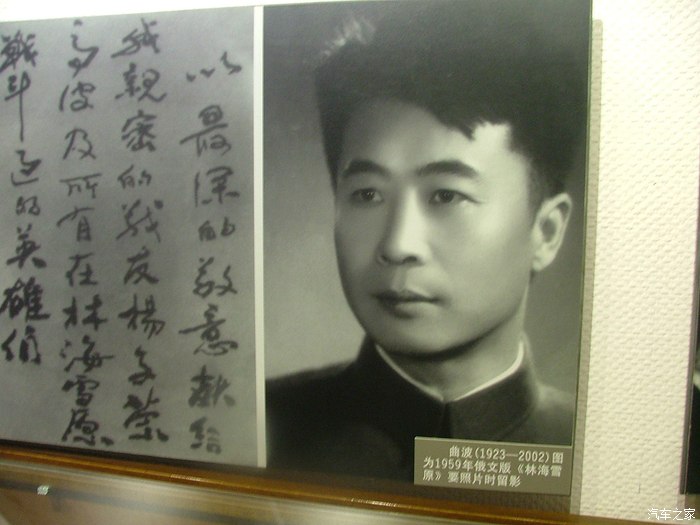 以最深的敬意献给
我親密的战友楊子荣
高波及所有在林海雪原
戰斗过的英雄们
曲波(1923—2002)图
为1959年俄文版《林海雪
原》要照片时留影
汽车之家